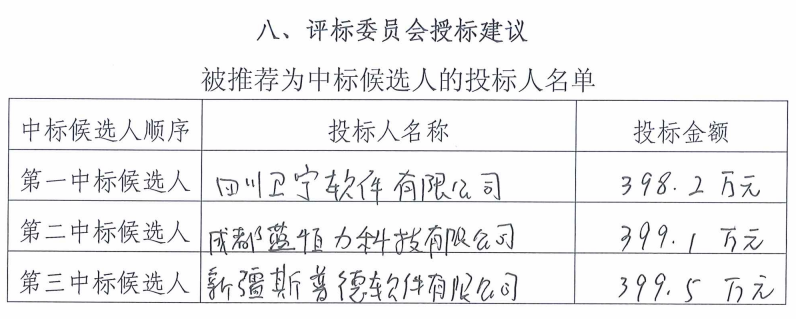 八、评标委员会授标建议
被推荐为中标候选人的投标人名单
中标候选人顺序 投标人名称 投标金额
第一中标候选人 四川卫宁软件有限公司 398.2万元
第二中标候选人 成都蓝恒力科技有限公司 399.1万元
第三中标候选人 新疆斯普德软件有限公司 399.5万元